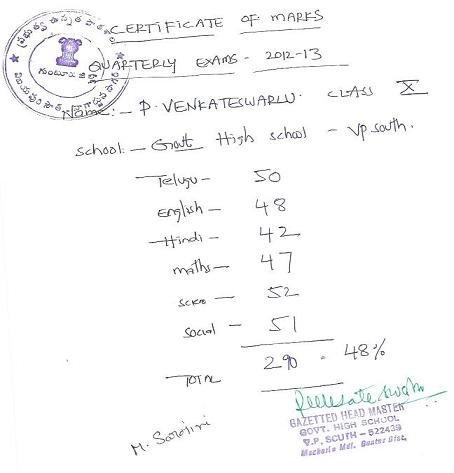 CERTIFICATE OF MARKS
QUARTERLY EXAMS - 2012-13
గుంటూరు జి
Name:- P. VENKATESWARLU. CLASS X
School:- Govt High school - VP South.
Telugu- 50
English- 48
-Hindi- 42
maths- 47
- 52
Social - 51
TOTAL 290 - 48%
GAZETTED HEAD MASTER
GOVT. HIGH SCHOOL
V.P. SOUTH - 522439
Macherla Mdl. Guntur Dist.
M. Sarojini